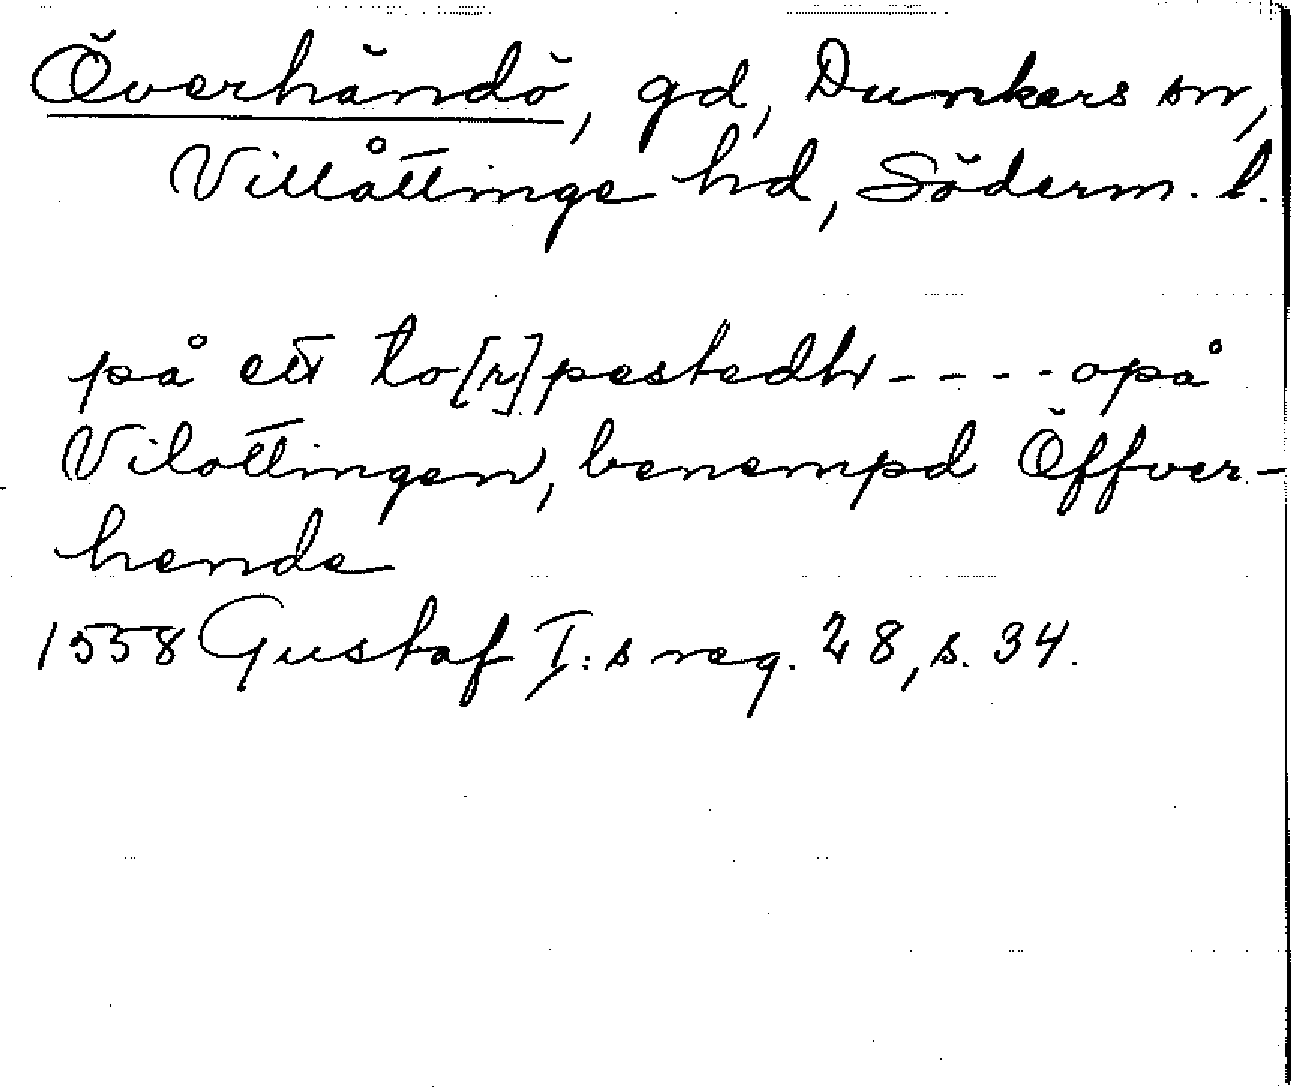 Överhändö, gd, Dunkers sn,
Villåttinge hd, Söderm. l.
på ett to[r]pestedht - - - - opå
Vilottingen, benempd Öffver-
hende
1558 Gustaf I:s reg. 28, s. 34.